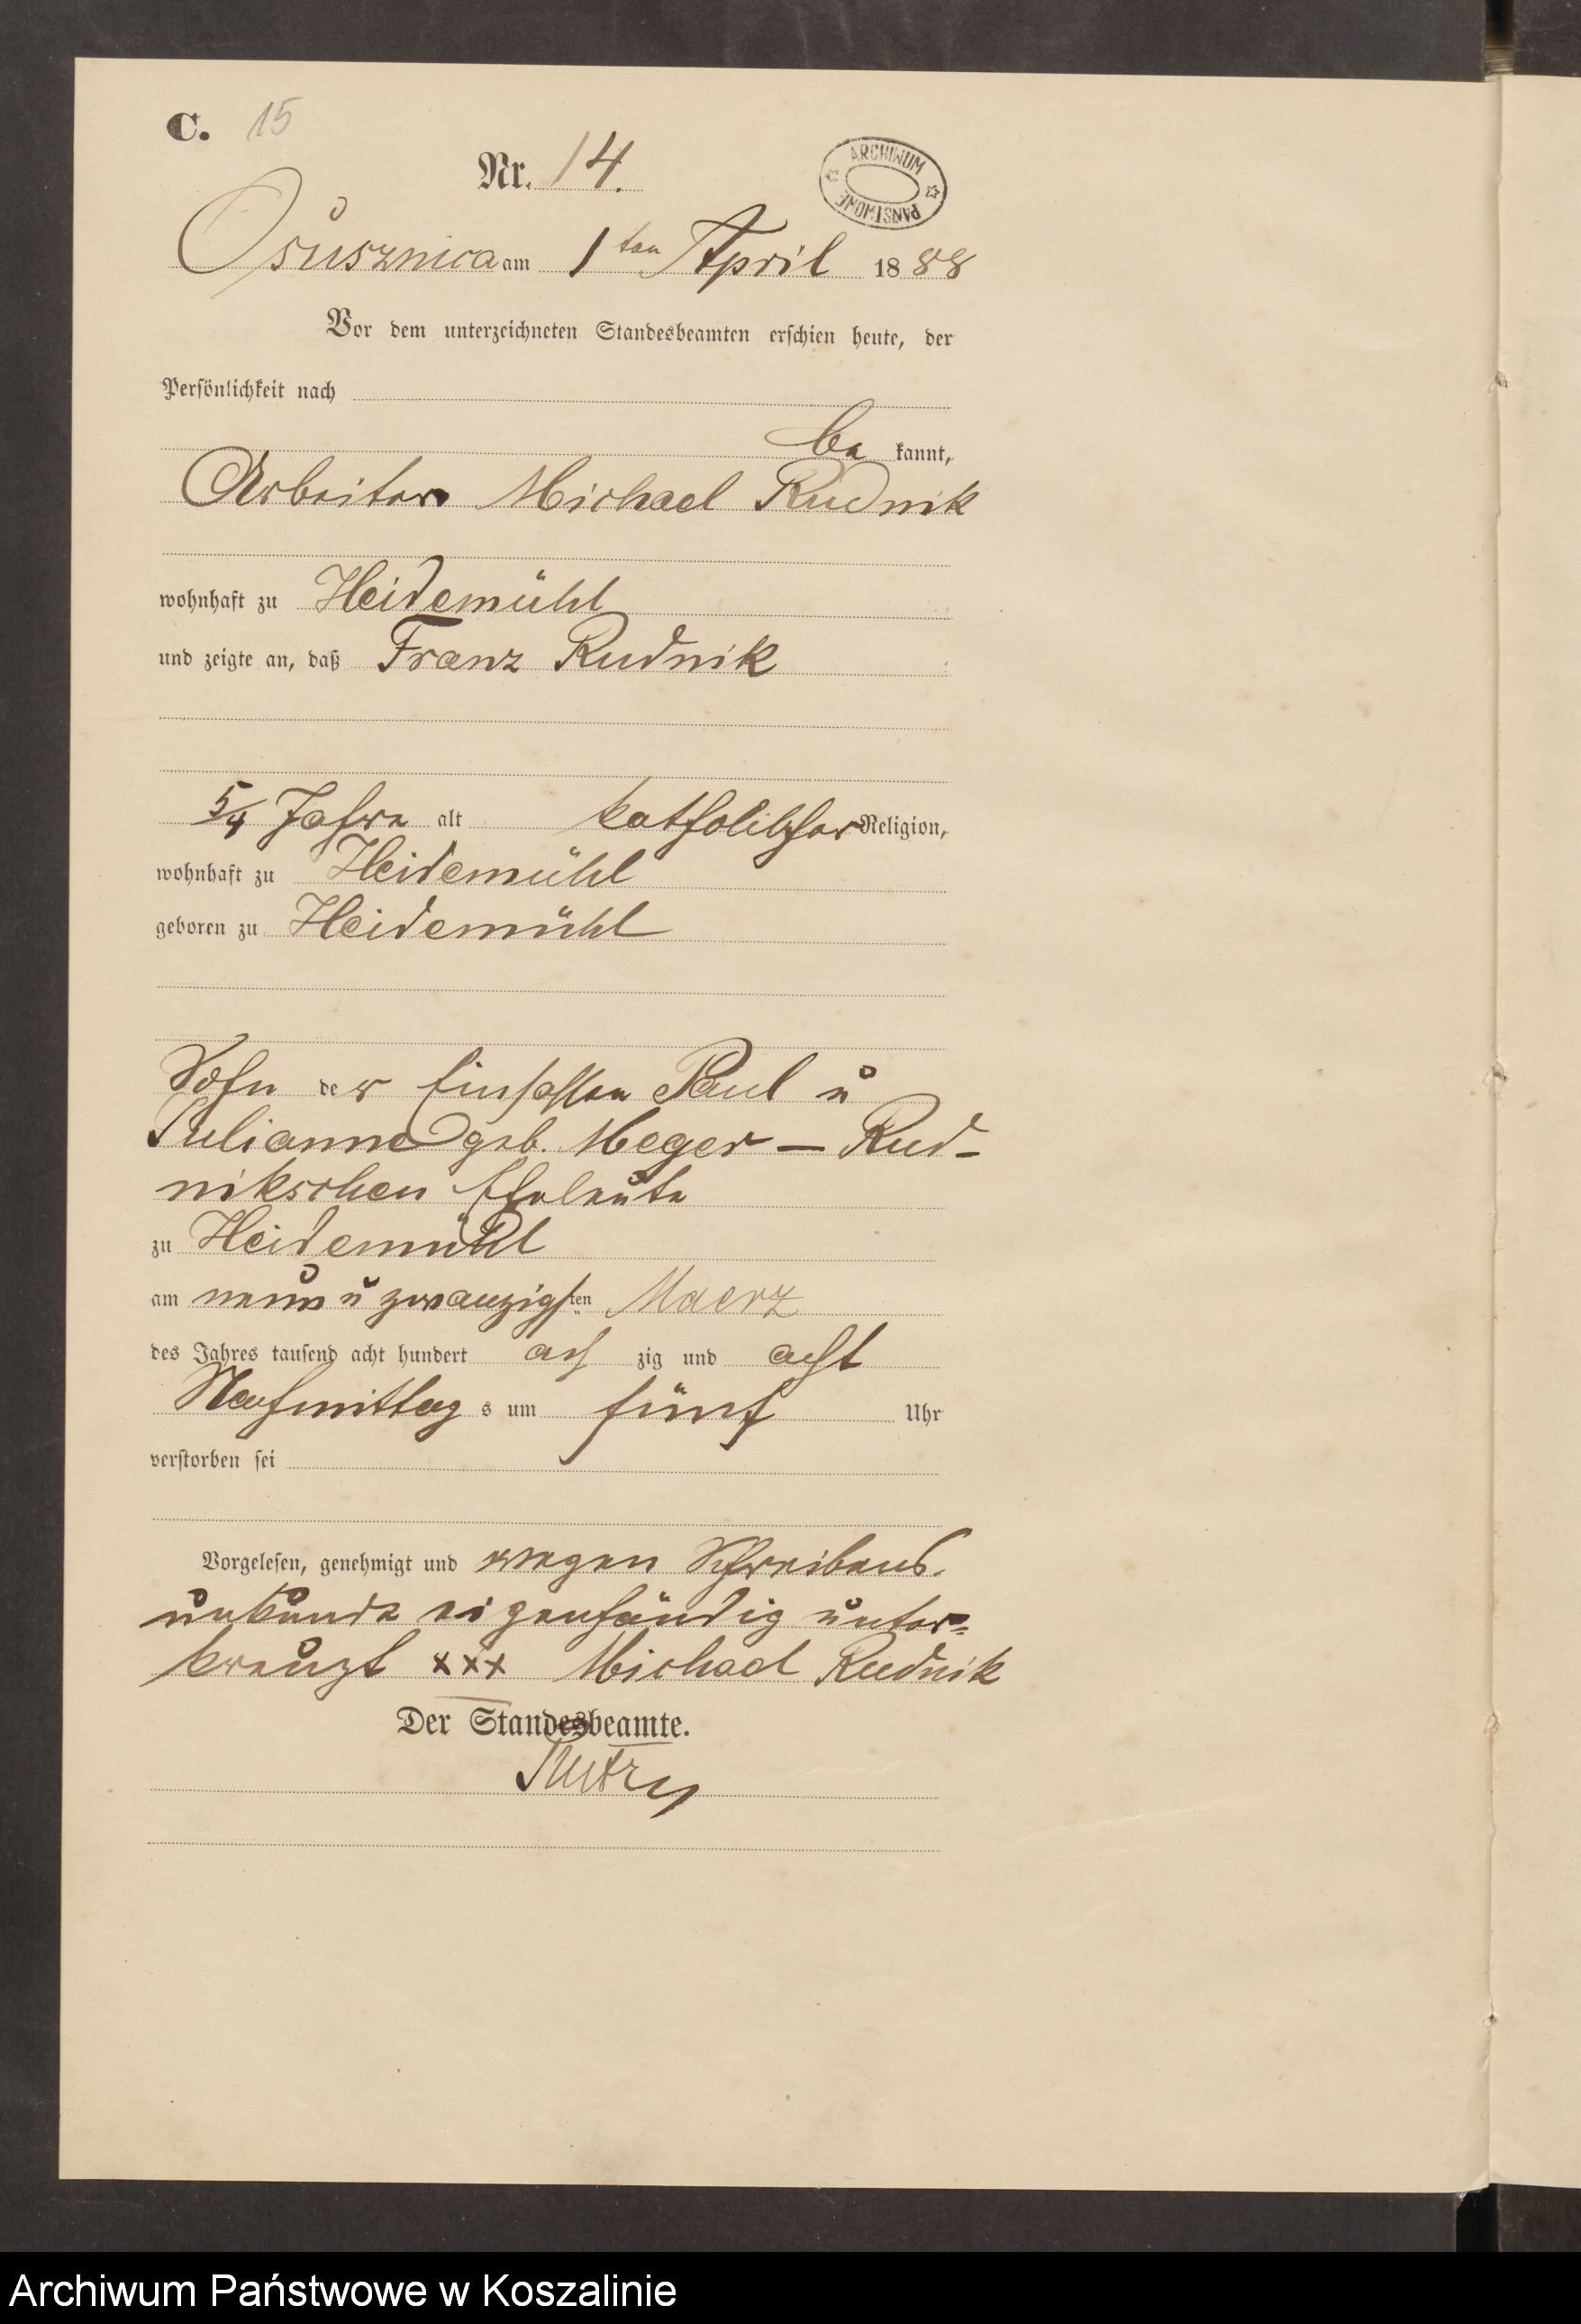 C. 15
Nr. 14.
ARCHIWUM PAŃSTWOWE
Osusznica am 1ten April 1888
Vor dem unterzeichneten Standesbeamten erschien heute, der
Persönlichkeit nach
be kannt,
Arbeiter Michael Rudnik
wohnhaft zu Heidemühl
und zeigte an, daß Franz Rudnik
5/4 Jahre alt katholischer Religion,
wohnhaft zu Heidemühl
geboren zu Heidemühl
Sohn der Einsassen Paul u
Julianne geb. Meger — Rud-
nikschen Eheleute
zu Heidemühl
am neun u zwanzigsten Maerz
des Jahres tausend acht hundert ach zig und acht
Nachmittag s um fünf Uhr
verstorben sei
Vorgelesen, genehmigt und wegen Schreibens-
unkunde eigenhändig unter=
kreuzt xxx Michael Rudnik
Der Standesbeamte.
Archiwum Państwowe w Koszalinie